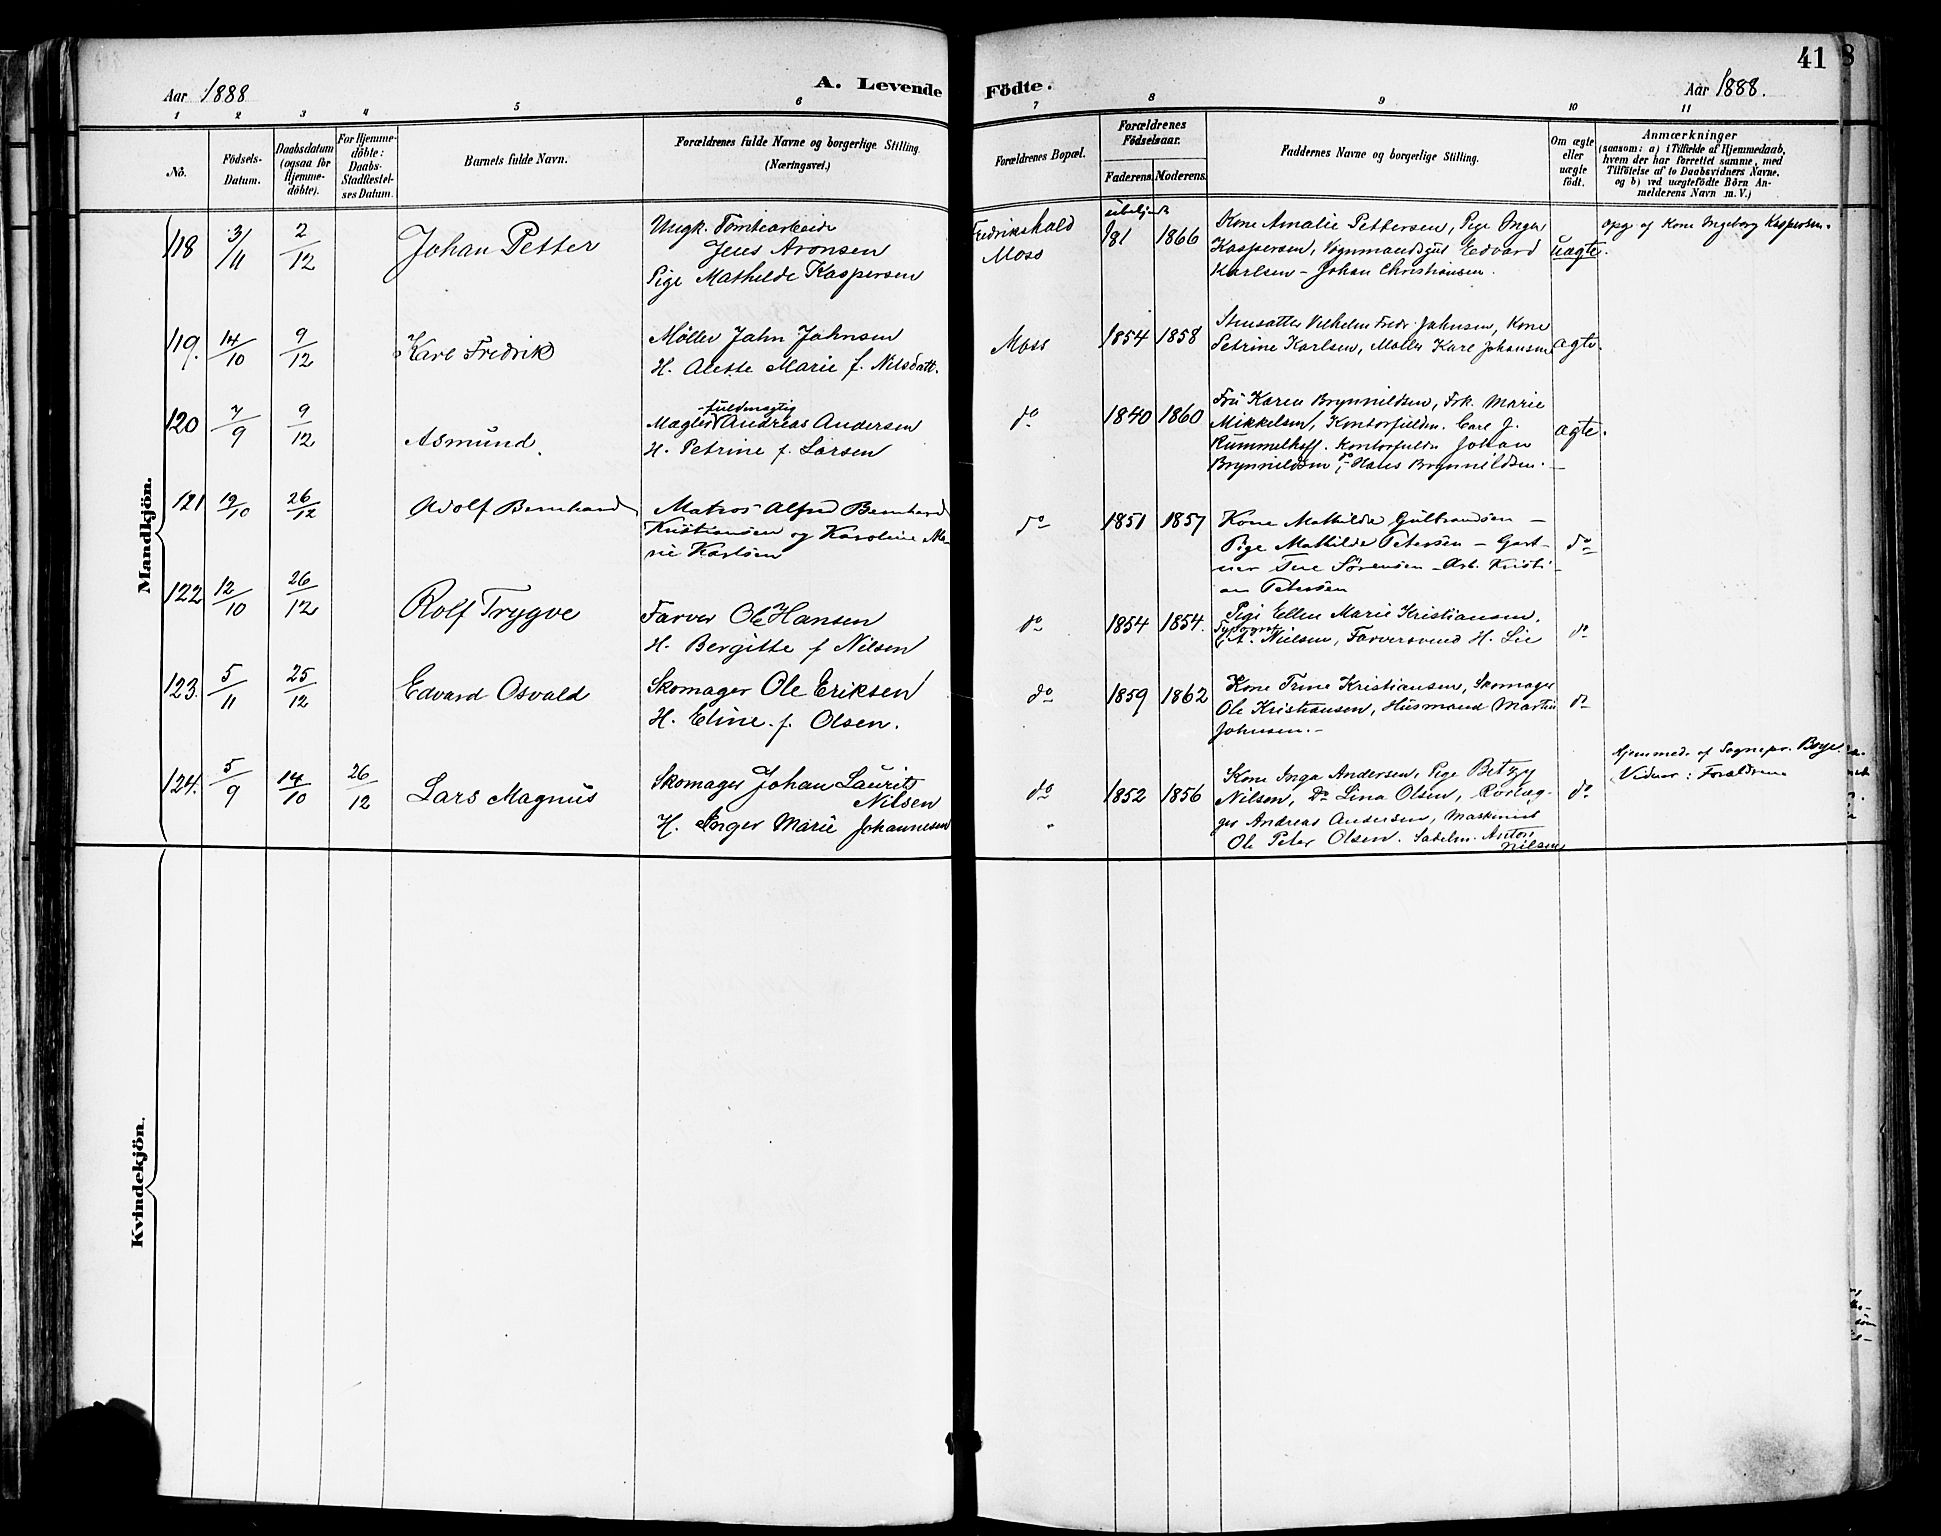 41
8
Aar 1888
A. Levende Födte.
Aar 1888.
1 2 3 4 5 6 7 8 9 10 11
No.
Födsels-Datum.
Daabsdatum (ogsaa for Hjemmedöbte).
For Hjemmedöbte: Daabs-Stadfæstelses Datum.
Barnets fulde Navn.
Forældrenes fulde Navne og borgerlige Stilling. (Næringsvei.)
Forældrenes Bopæl.
Forældrenes Födselsaar.
Faderens. Moderens.
Faddernes Navne og borgerlige Stilling.
Om ægte eller uægte födt.
Anmærkninger
(saasom: a) i Tilfælde af Hjemmedaab, hvem der har forrettet samme, med Tilföielse af to Daabsvidners Navne, og b) ved uægtefödte Börn Anmelderens Navn m. V.)
Mandkjön.
118 3/11 2/12 Johan Petter
Ungk. Tomtearbeide
Jens Aronsen
Pige Mathilde Kaspersen
Fredrikshald
Moss
181 1866
Kone Amalie Pettersen, Pige Inga
Kaspersen, Vognmandsgut Edvard
Karlsen - Johan Christiansen.
uægte.
opg. af Kone Ingeborg Kaspersen.
119. 14/10 9/12 Karl Fredrik
Møller Jahn Jahnsen
H. Alette Marie f. Nilsdatt.
Moss 1854 1858
Vilhelm Fredr. Jahnsen, Kone
Petrine Karlsen, Møller Karl Johansen
ægte.
120 7/9 9/12 Asmund.
fuldmægtig
Mægler Andreas Andersen
H. Petrine f. Larsen
do 1840 1860
Fru Karen Brynnildsen, Frk. Marie
Mikkelsen, Kontorfuldm. Carl J.
Rummelhoff. Kontorfuldm Johan
Brynnildsen, do Hans Brynnildsen.
ægte.
121 12/10 26/12 Adolf Bernhard
Matros Alfred Bernhard
Kristiansen og Karoline Ma-
rie Karlsen
do 1851 1857
Kone Mathilde Gulbrandsen -
Pige Mathilde Petersen - Gart-
ner Sørensen - Arb. Kristi-
an Petersen
do
122 12/10 26/12 Rolf Trygve
Farver Ole Hansen
H. Bergitte f Nilsen
do 1854 1854.
Pige Ellen Marie Kristiansen,
Typograf
A. Nielsen, Farversvend H. Lie
do
123. 5/11 25/12 Edvard Osvald
Skomager Ole Eriksen
H. Eline f. Olsen.
do 1859 1862
Kone Trine Kristiansen, Skomager
Ole Kristiansen, Husmand Martin
Johnsen.-
do
124. 5/9 14/10 26/12 Lars Magnus
Skomager Johan Laurits
Nilsen
H. Inger Marie Johannesen
do 1852 1856
"
Kone Inga Andersen, Pige Betzy
Nilson, Do Lina Olsen, Rørlæg-
ger Andreas Andersen, Maskinist
Ole Peter Olsen. Sadelm. Anton
Nilsen
do
Hjemmed. af Sognepr. Borge.
Vidner: Forældrene
Kvindekjön.